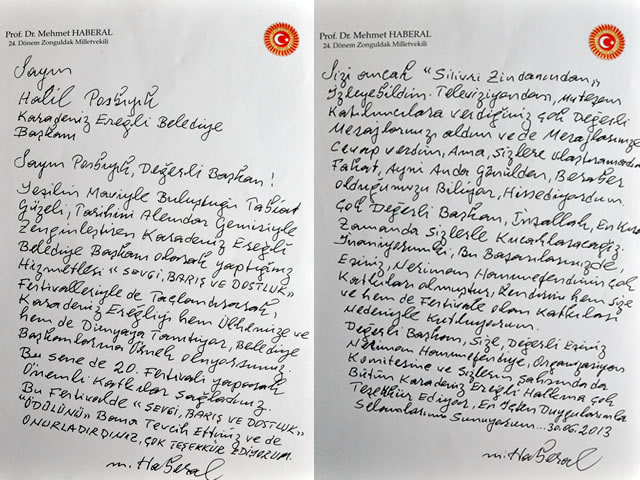 Prof. Dr. Mehmet HABERAL
24. Dönem Zonguldak Milletvekili
Sayın
Halil Posbıyık
Karadeniz Ereğli Belediye
Başkanı
Sayın Posbıyık, Değerli Başkan!
Yeşilin Maviyle Buluştuğu Tabiat
Güzeli, Tarihini Alemdar Gemisiyle
Zenginleştiren Karadeniz Ereğli
Belediye Başkanı olarak yaptığınız
Hizmetleri "SEVGİ, BARIŞ VE DOSTLUK"
Festivalleriyle de Taçlandırarak,
Karadeniz Ereğliyi hem Ülkemize ve
hem de Dünyaya Tanıtıyor, Belediye
Başkanlarına Örnek oluyorsunuz.
Bu sene de 20. Festivali yaparak
Önemli Katkılar sağladınız.
Bu Festivalde "SEVGİ, BARIŞ VE DOSTLUK"
"ÖDÜLÜNÜ" Bana Tercih Ettiniz ve de
ONURLADIRDINIZ, ÇOK TEŞEKKÜR EDİYORUM.
m. Haberal
Prof. Dr. Mehmet HABERAL
24. Dönem Zonguldak Milletvekili
Sizi ancak "Silivri Zindanından"
İzleyebildim. Televizyondan, muhteşem
Katılımcılara verdiğiniz çok Değerli
Mesajlarınızı aldım ve de Mesajlarınıza
Cevap verdim, Ama, Sizlere ulaştıramadım
Fakat, Aynı Anda Gönülden, Beraber
olduğumuzu Biliyor, Hissediyordum.
Çok Değerli Başkan, İnşallah, En Kısa
Zamanda Sizlerle Kucaklaşacağız.
İnanıyorumki, Bu Başarılarınızda,
Eşiniz, Neriman Hanımefendinin çok
Katkıları olmuştur, Kendisini hem Size
ve hem de Festivale olan Katkıları
Nedeniyle Kutluyorum.
Değerli Başkan, Size, Değerli Eşiniz
Neriman Hanımefendiye, Organizasyon
Komitesine ve Sizlerin Şahsında da
Bütün Karadeniz Ereğli Halkına çok
Teşekkür Ediyor, En İçten Duygularımla
Selamlarımı Sunuyorum...30.06.2013
m. Haberal